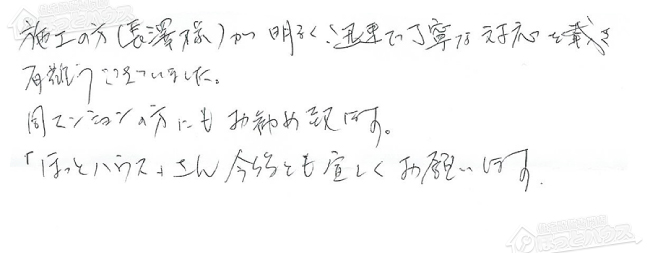 施工の方(長澤様)が明るく、迅速で丁寧な対応を戴き
有難うございました。
同マンションの方にもお勧め致します。
「ほっとハウス」さん今後とも宜しくお願いします。
ほっとハウス